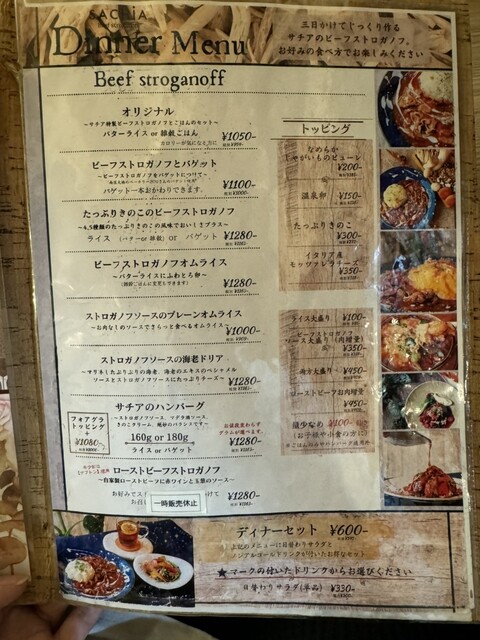 SACHiA
Dinner Menu
三日かけてじっくり作る
サチアのビーフストロガノフ。
お好みの食べ方でお楽しみください
Beef stroganoff
オリジナル
〜サチア特製ビーフストロガノフとごはんのセット〜
バターライス or 雑穀ごはん ¥1050-
カロリーが気になる方に
ビーフストロガノフとバゲット
〜ビーフストロガノフをバゲットにつけて〜
バゲット一本おかわりできます。 ¥1100-
たっぷりきのこのビーフストロガノフ
〜4,5種類のたっぷりきのこの風味でおいしさプラス〜
ライス (バター or 雑穀) or バゲット ¥1280-
ビーフストロガノフオムライス
〜バターライスにふわとろ卵〜 ¥1280-
(雑穀ごはんに変更もできます)
ストロガノフソースのプレーンオムライス
〜お肉なしのソースでさらっと食べるオムライス〜
¥1000-
ストロガノフソースの海老ドリア
〜マリネしたぷりぷりの海老、海老のエキスのベシャメル
ソースとストロガノフソースにたっぷりチーズ〜 ¥1280-
フォアグラ
トッピング
+
¥1080-
サチアのハンバーグ
〜ストロガノフソース、マデラ酒ソース、
きのこクリーム、絶妙のバランスです〜
お値段変わらず
グラムが選べます。
160g or 180g
ライス or バゲット
¥1280-
ローストビーフストロガノフ
〜自家製ローストビーフに赤ワインと玉葱のソース〜
¥1280-
一時販売休止
トッピング
なめらか
じゃがいものピューレ
¥200-
温泉卵 ¥150-
たっぷりきのこ
¥300-
イタリア産
モッツァレラチーズ
¥350-
ライス大盛り ¥100-
ビーフストロガノフ
ソース大盛り (肉増量)
¥350-
両方大盛り ¥450-
ローストビーフお肉増量
¥450-
頭少なめ ¥100-
(お子様や小食の方に)
ディナーセット ¥600-
上記のメニューに日替わりサラダと
ノンアルコールドリンクが付いたお得なセット
★マークの付いたドリンクからお選びください
日替わりサラダ(単品) ¥330-